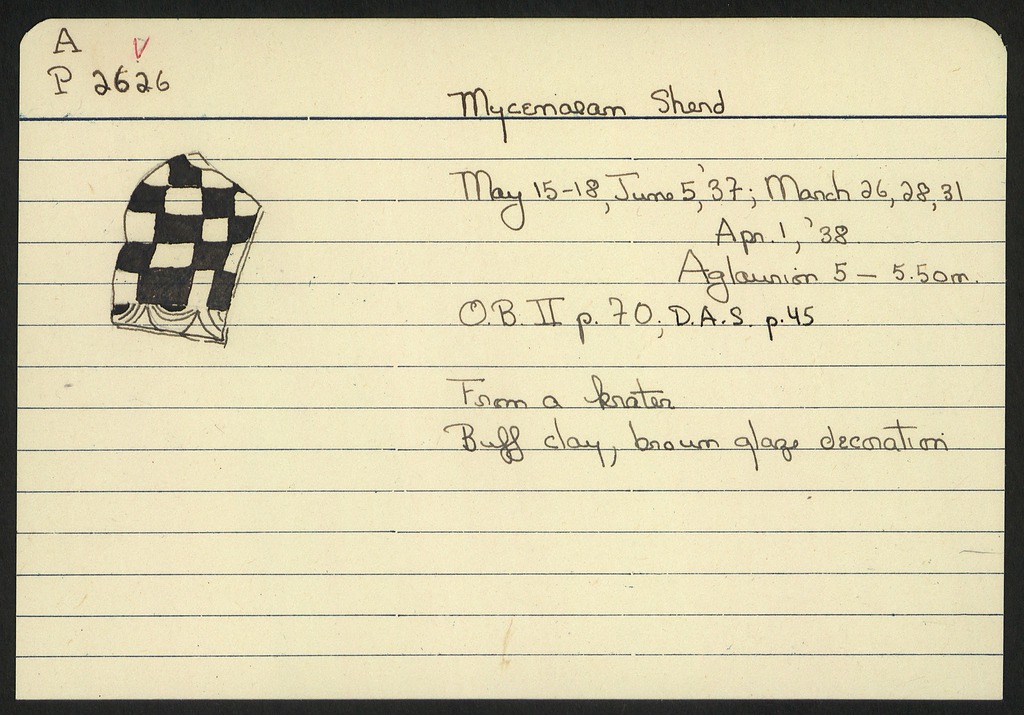 A
P 2626
Mycenaean Sherd
May 15-18, June 5, '37; March 26, 28, 31
Apr. 1, '38
Aglaurion 5 – 5.50m.
O.B. II p. 70; D.A.S. p. 45
From a krater
Buff clay, brown glaze decoration